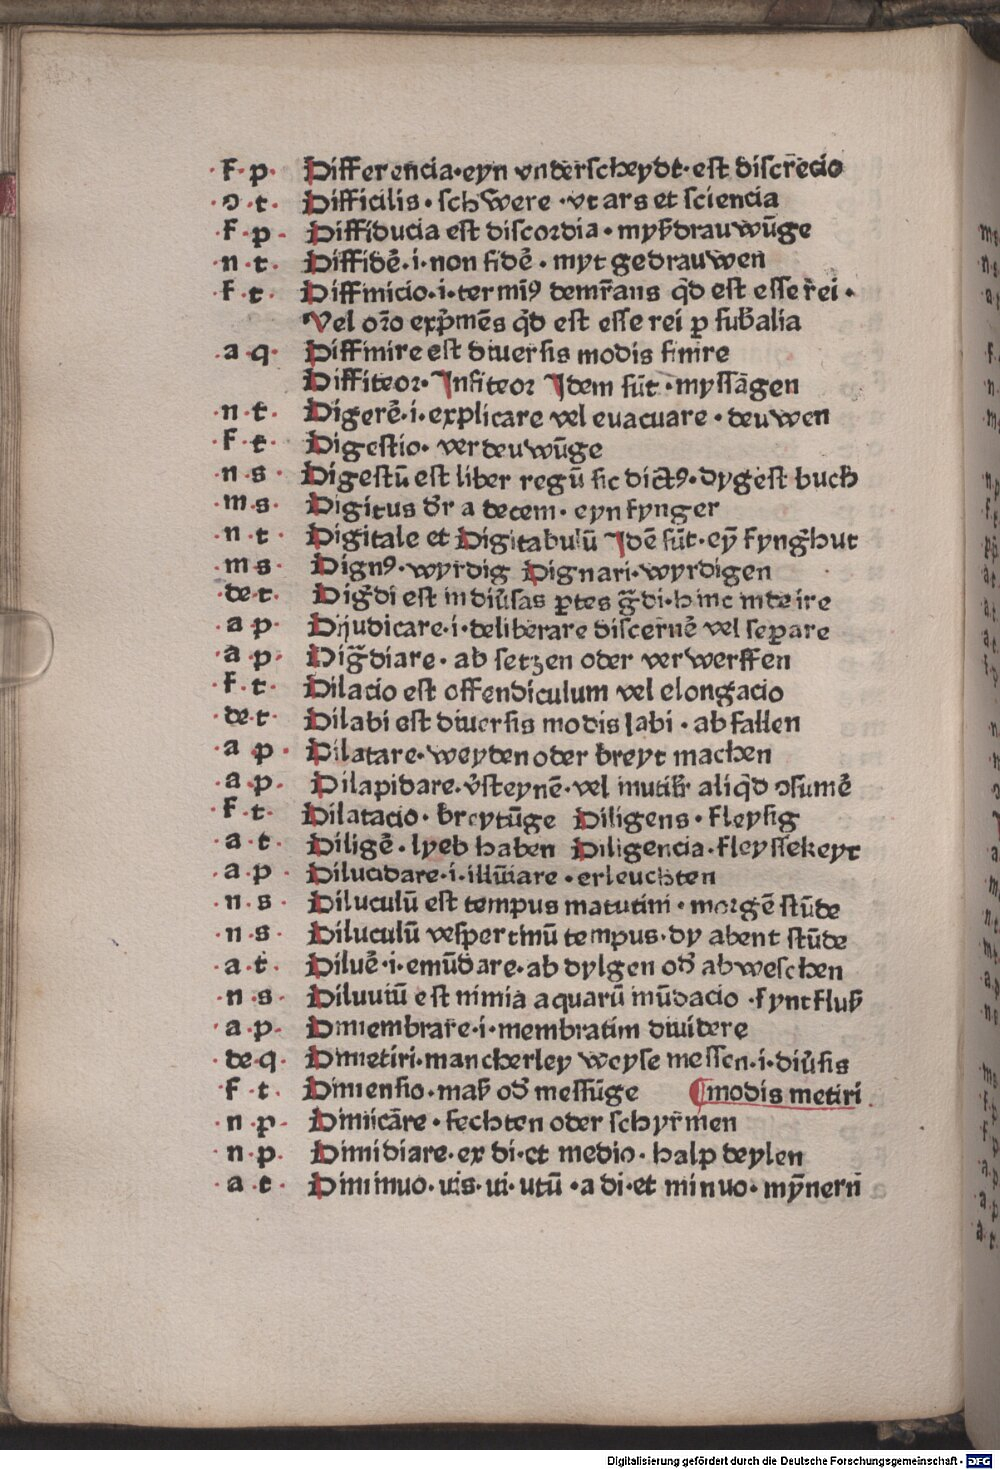 ·f·p· Differencia·eyn vnderscheydt·est discrecio
·ↄ·t· Difficilis·schwere·vt ars et sciencia
·f·p· Diffiducia est discordia·myßdrauwūge
·n·t· Diffidē·i·non fidē·myt gedrauwen
·f·t· Diffinicio·i·termīꝰ demr̄ans qd̄ est esse rei·
Vel or̄o exp̄mēs qd̄ est esse rei ꝑ sub̄alia
·a·q· Diffinire est diuersis modis finire
Diffiteor·Infiteor Idem sūt·myssāgen
·n·t· Digerē·i·explicare vel euacuare·deuwen
·f·t· Digestio·verdeuwūge
·n·s· Digestū est liber regū sic dictꝰ·dygest buch
·m·s· Digitus dr̄ a decem·eyn fynger
·n·t· Digitale et Digitabulū Idē sūt·eȳ fyngh̄ut
·m·s· Dignꝰ·wyrdig Dignari·wyrdigen
·de·t· Digd̄i est in diūsas ꝑtes gd̄i·hinc inde ire
·a·p· Dijudicare·i·deliberare discernē vel seꝑare
·a·p· Digd̄iare·ab setzen oder verwerffen
·f·t· Dilacio est offendiculum vel elongacio
·de·t· Dilabi est diuersis modis labi·ab fallen
·a·p· Dilatare·weyden oder breyt machen
·a·p· Dilapidare·v̄steynē·vel inutilr̄ aliqd̄ ↄsumē
·f·t· Dilatacio·breytūge Diligens·fleysig
·a·t· Diligē·lyeb haben Diligencia·fleyssekeyt
·a·p· Dilucidare·i·illūiare·erleuchten
·n·s· Diluculū est tempus matutini·morgē stūde
·n·s· Diluculū vespertinū tempus·dy abent stūde
·a·t· Diluē·i·emūdare·ab dylgen od̄ ab weschen
·n·s· Diluuiū est nimia aquarū mūdacio·syntfluß
·a·p· Dimembrare·i·membratim diuidere
·de·q· Dimetiri·mancherley weyse messen·i·diūsis
·f·t· Dimensio·maß od̄ messūge ¶modis metiri
·n·p· Dimicāre·fechten oder schyrmen
·n·p· Dimidiare·ex di·et medio·halp deylen
·a·t· Diminuo·uis·ui·utū·a di·et minuo·mȳnern
Digitalisierung gefördert durch die Deutsche Forschungsgemeinschaft - DFG